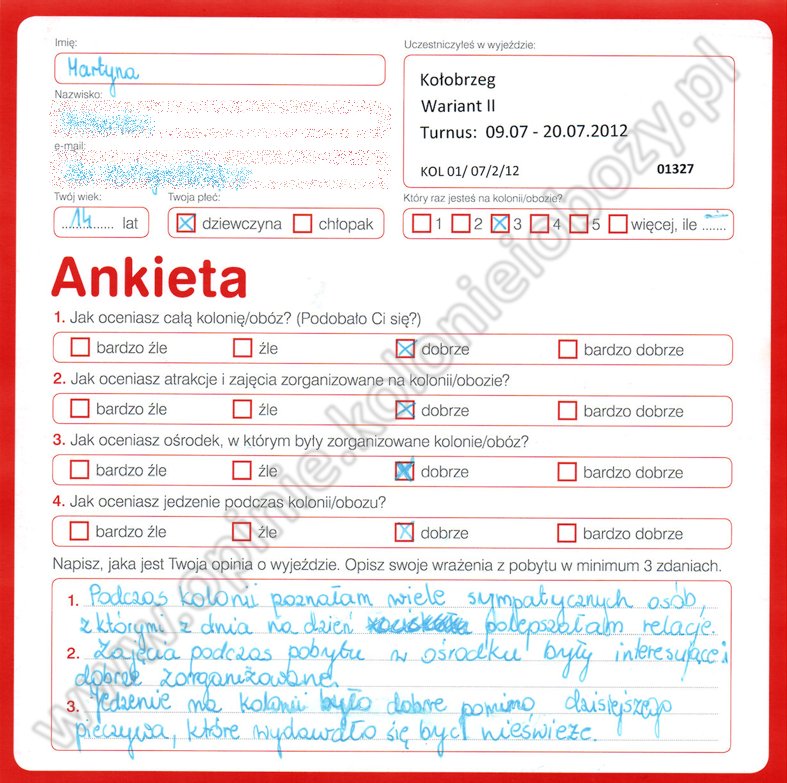 Imię:
Martyna
Nazwisko:
e-mail:
Twój wiek:
14 lat
Twoja płeć:
dziewczyna chłopak
Uczestniczyłeś w wyjeździe:
Kołobrzeg
Wariant II
Turnus: 09.07 - 20.07.2012
KOL 01/ 07/2/12 01327
Który raz jesteś na kolonii/obozie?
1 2 3 4 5 więcej, ile .......
Ankieta
1. Jak oceniasz całą kolonię/obóz? (Podobało Ci się?)
bardzo źle źle dobrze bardzo dobrze
2. Jak oceniasz atrakcje i zajęcia zorganizowane na kolonii/obozie?
bardzo źle źle dobrze bardzo dobrze
3. Jak oceniasz ośrodek, w którym były zorganizowane kolonie/obóz?
bardzo źle źle dobrze bardzo dobrze
4. Jak oceniasz jedzenie podczas kolonii/obozu?
bardzo źle źle dobrze bardzo dobrze
Napisz, jaka jest Twoja opinia o wyjeździe. Opisz swoje wrażenia z pobytu w minimum 3 zdaniach.
1. Podczas kolonii poznałam wiele sympatycznych osób,
z którymi z dnia na dzień polepszałam relacje.
2. Zajęcia podczas pobytu w ośrodku były interesujące i
dobrze zorganizowane.
3. Jedzenie na kolonii było dobre pomimo dzisiejszego
pieczywa, które wydawało się być nieświeże.
www.opinie.kolonieiobozy.pl